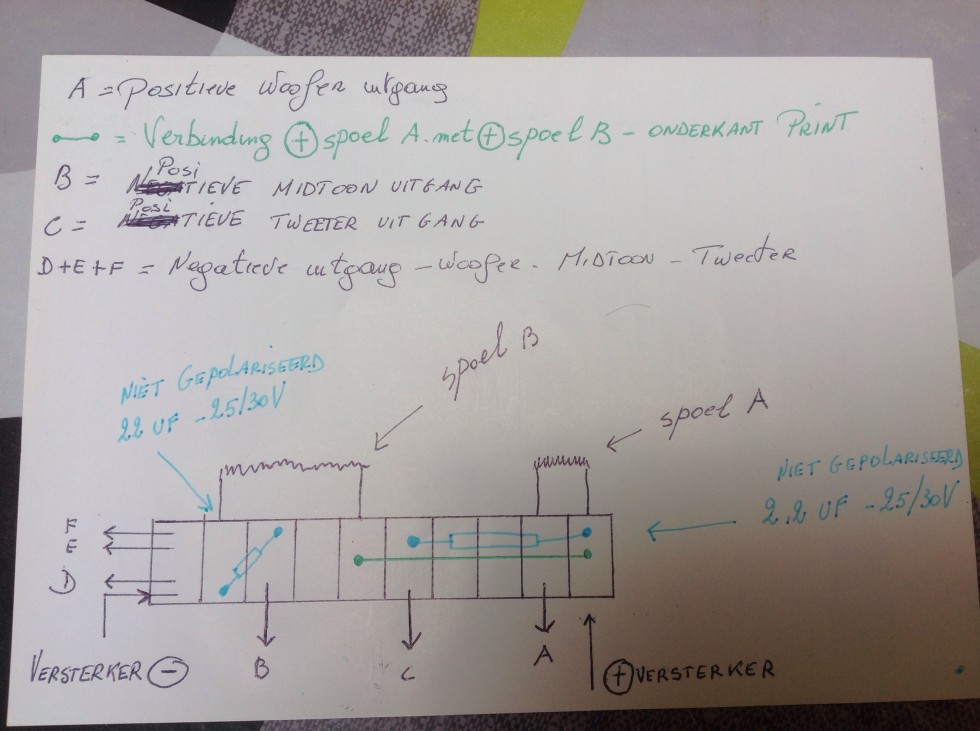 A = Positieve woofer uitgang
= Verbinding + spoel A. met + spoel B - ONDERKANT PRINT
B = Posi TIEVE MIDTOON UITGANG
C = Posi TIEVE TWEETER UIT GANG
D+E+F = Negatieve uitgang - woofer - MIDTOON - Tweeter
spoel B
NIET GEPOLARISEERD
22 UF - 25/30V
spoel A
NIET GEPOLARISEERD
2.2 UF - 25/30V
F
E
D
VERSTERKER -
B
C
A
+ VERSTERKER